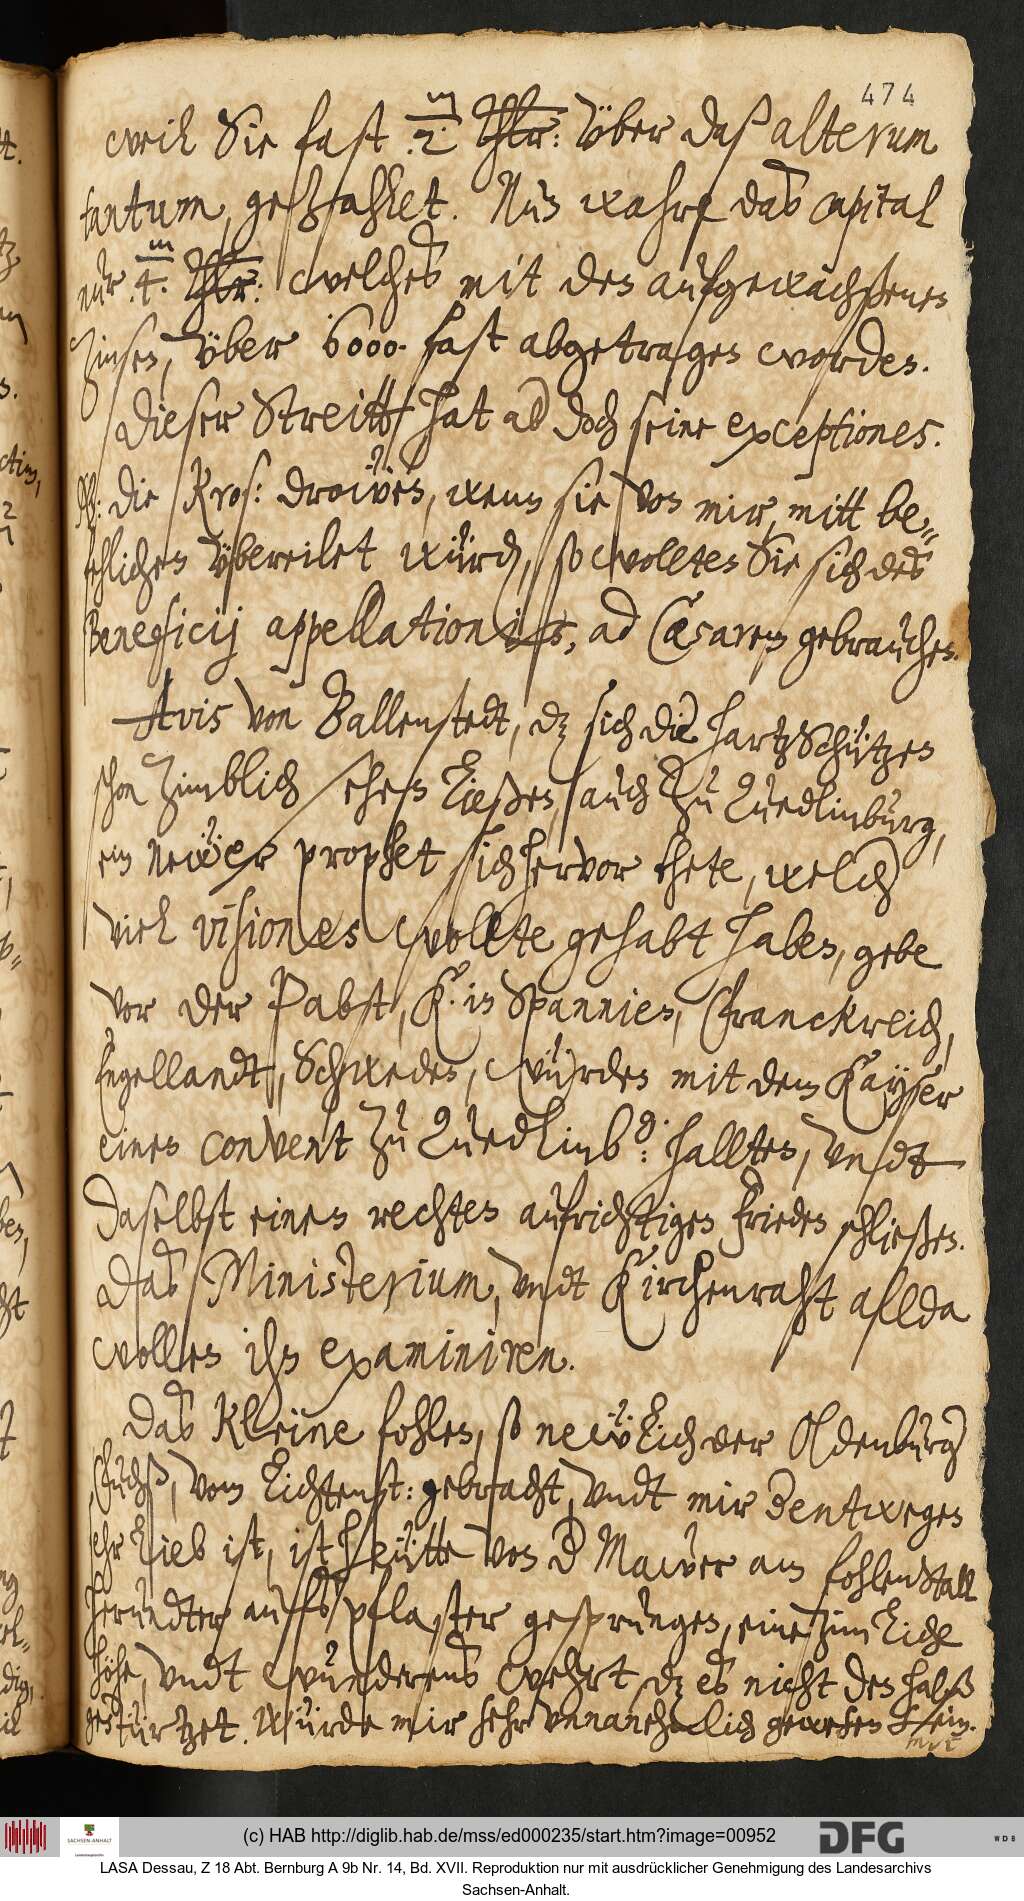 474
weil Sie fast .2. m Thlr: über daß alterum
tantum, gezahlet. Nun wahre das capital
nur .4. m Thlr: welches mit den aufgewachßenen
Zinsen, über 6000 fast abgetragen worden.
Dieser Streitt hat aber doch seine exceptiones.
Die Kros: drowen, wenn sie von mir, mitt be-
fehlichen übereilet würden, so wollten Sie sich des
Beneficij appellationis, ad Cæsarem gebrauchen.
Avis von Ballenstedt, dz sich die HartzSchützen
schon zimblich sehen ließen, auch zu Quedlinburg,
ein newer prophet sich hervor thete, welcher
viel visiones wollte gehabt haben, gebe
vor der Pabst, K. in Spannien, Franckreich,
Engellandt, Schweden, würden mit dem Kayser
einen convent zu Quedlinb: halten, undt
daselbst einen rechten aufrichtigen frieden schließen.
Das Ministerium, undt Kirchenraht allda
wollen ihn examiniren.
Das Kleine fohlen, so newlich der Oldenburger
Fuchß, vom Lichtenst: gebracht, undt mir dentwegen
sehr lieb ist, ist heütte von der Mawer am fohlenStall
herundter auffs pflaster gesprungen, eine zimliche
höhe, undt wunderens wehrt dz es nicht den halß
gestürtzet. Würde mir sehr unnanehmlich gewesen sein.
mit
(c) HAB http://diglib.hab.de/mss/ed000235/start.htm?image=00952
DFG
WDB
SACHSEN-ANHALT
LASA Dessau, Z 18 Abt. Bernburg A 9b Nr. 14, Bd. XVII. Reproduktion nur mit ausdrücklicher Genehmigung des Landesarchivs
Sachsen-Anhalt.